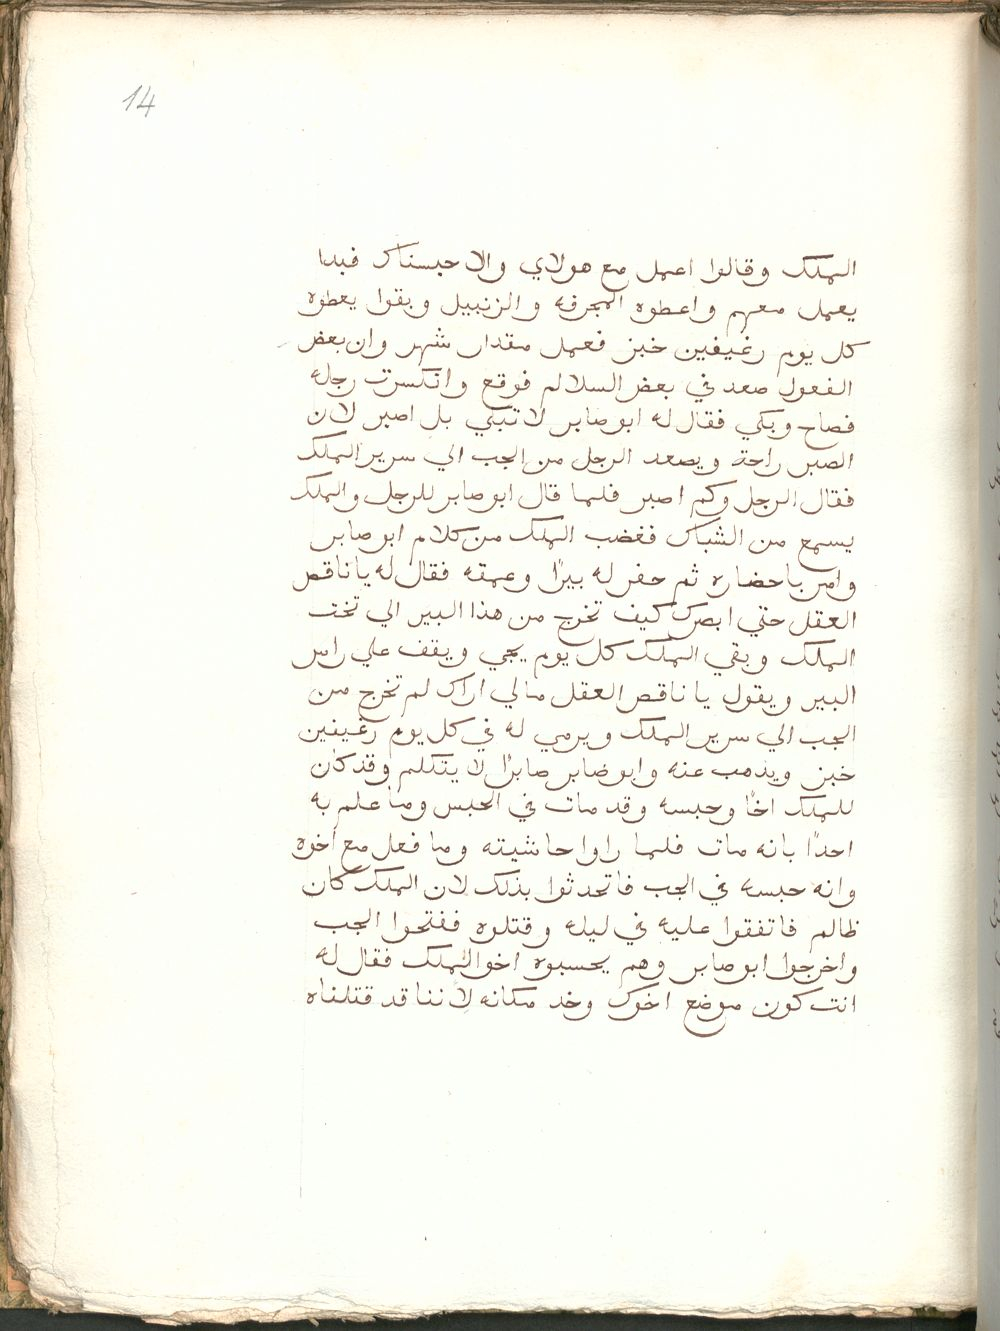 14
الملك وقالوا اعمل مع هولاي والا حبسناك فبدا
يعمل معهم واعطوه المجرفه والزنبيل وبقوا يعطوه
كل يوم رغيفين خبز فعمل مقدار شهر وان بعض
الفعول صعد في بعض السلالم فوقع وانكسرت رجله
فصاح وبكي فقال له ابو صابر لا تبكي بل اصبر لان
الصبر راحة ويصعد الرجل من الجب الي سرير الملك
فقال الرجل وكم اصبر فلما قال ابو صابر للرجل والملك
يسمع من الشباك فغضب الملك من كلام ابو صابر
وامر باحضاره ثم حفر له بيرًا وعمقه فقال له يا ناقص
العقل حتي ابصرك كيف تخرج من هذا البير الي تخت
الملك وبقي الملك كل يوم يجي ويقف علي راس
البير ويقول يا ناقص العقل مالي اراك لم تخرج من
الجب الي سرير الملك ويرمي له في كل يوم رغيفين
خبز ويذهب عنه وابو صابر صابرًا لا يتكلم وقد كان
للملك اخًا وحبسه وقد مات في الحبس وما علم به
احدًا بانه مات فلما راوا حاشيته وما فعل مع اخوه
وانه حبسه في الجب فاتحدثوا بذلك لان الملك كان
ظالم فاتفقوا عليه في ليله وقتلوه ففتحوا الجب
واخرجوا ابو صابر وهم يحسبوه اخو الملك فقال له
انت كون موضع اخوك وخد مكانه لاننا قد قتلناه